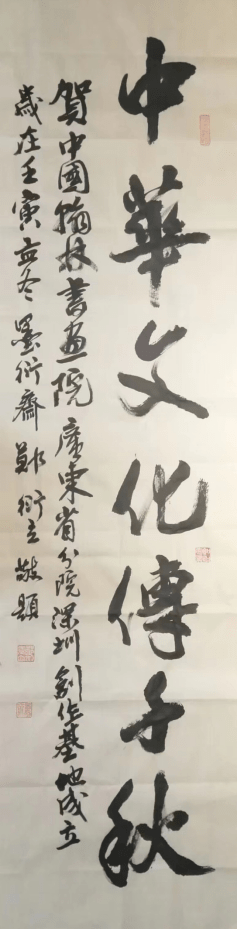 中華文化傳千秋
賀中國翰林書画院廣東省分院深圳創作基地成立
歲在壬寅立冬墨衍齋鄭衍立敬題